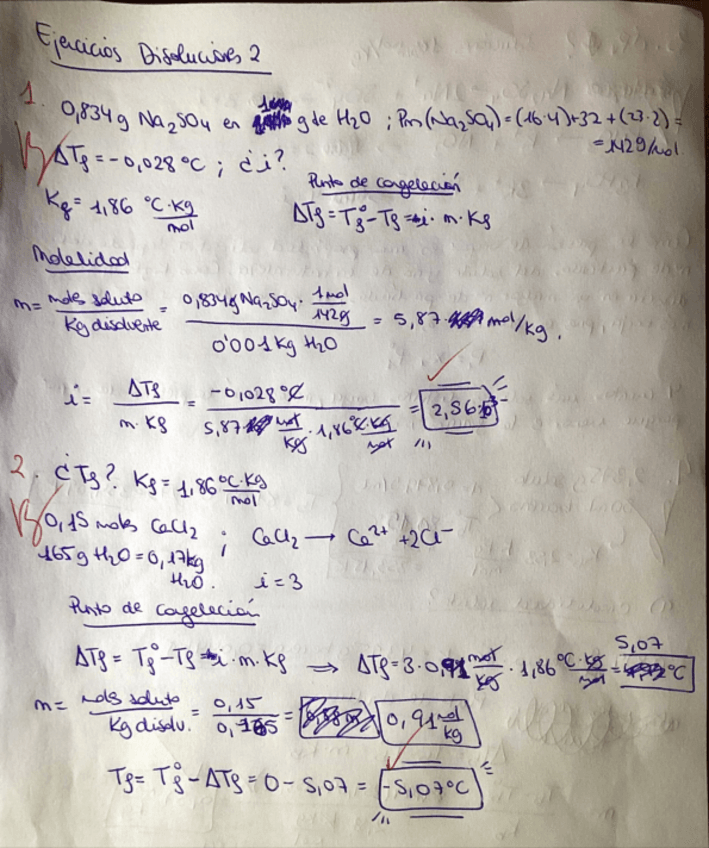 Ejercicios Disoluciones 2
1. 0,834g Na₂SO₄ en 1000 g de H₂O ; Pm(Na₂SO₄)=(16·4)+32+(23·2)=
=142g/mol
ΔTf = -0,028 °C ; ¿i?
Kf = 1,86 °C·Kg/mol
Punto de congelación
ΔTf = Tf° - Tf = i · m · Kf
Molalidad
m = moles soluto/Kg disolvente = 0,834g Na₂SO₄ · 1mol/142g / 0'001 Kg H₂O = 5,87 · mol/kg.
i = ΔTf/m · Kf = -0,028 °C / 5,87 mol/Kg · 1,86 °C·Kg/mol = 2,56
2. ¿Tf? Kf = 1,86 °C·Kg/mol
0,15 moles CaCl₂ ; CaCl₂ → Ca²⁺ + 2Cl⁻
165g H₂O = 0,17kg
H₂O. i = 3
Punto de congelación
ΔTf = Tf° - Tf = i · m · Kf ⇒ ΔTf = 3 · 0,91 mol/Kg · 1,86 °C·Kg/mol = 5,07 °C
m = mols soluto/Kg disolv. = 0,15/0,165 = 0,91 mol/kg
Tf = Tf° - ΔTf = 0 - 5,07 = -5,07°C